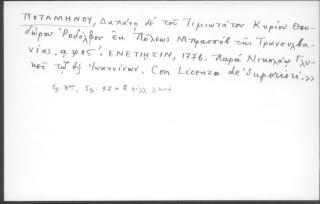 ΠΟΤΑΜΗΝΟΥ, Δαπάνη δέ τοῦ Τιμιωτάτου Κυρίου Θεο-
δώρου Ῥοδόλφου ἐκ Πόλεως Μπρασσόβ τῆς Τρανσυλβα-
νίας. αψοϛ΄. ΕΝΕΤΙΗΣΙΝ, 1776. Παρά Νικολάῳ Γλυ-
κεῖ τῷ ἐξ Ἰωαννίνων. Con Licenza de' Superiori.»